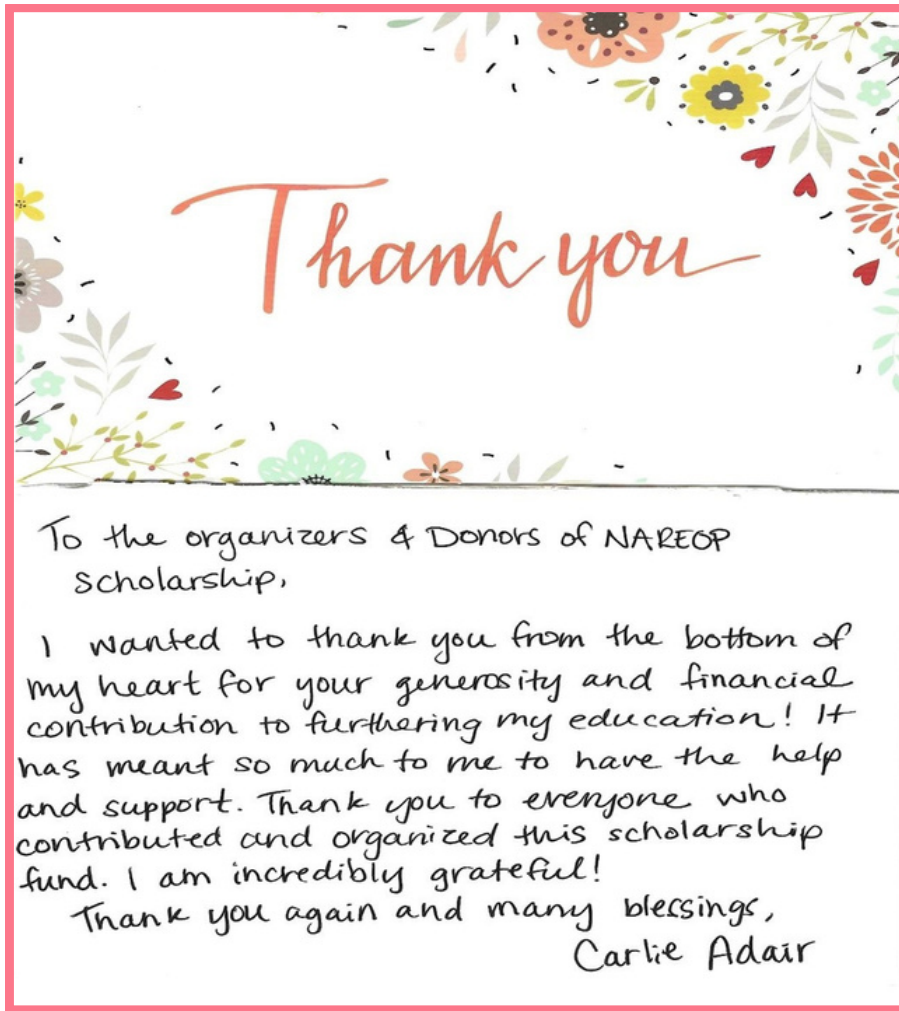 Thank you
To the organizers & Donors of NAREOP
scholarship,
I wanted to thank you from the bottom of
my heart for your generosity and financial
contribution to furthering my education! It
has meant so much to me to have the help
and support. Thank you to everyone who
contributed and organized this scholarship
fund. I am incredibly grateful!
Thank you again and many blessings,
Carlie Adair